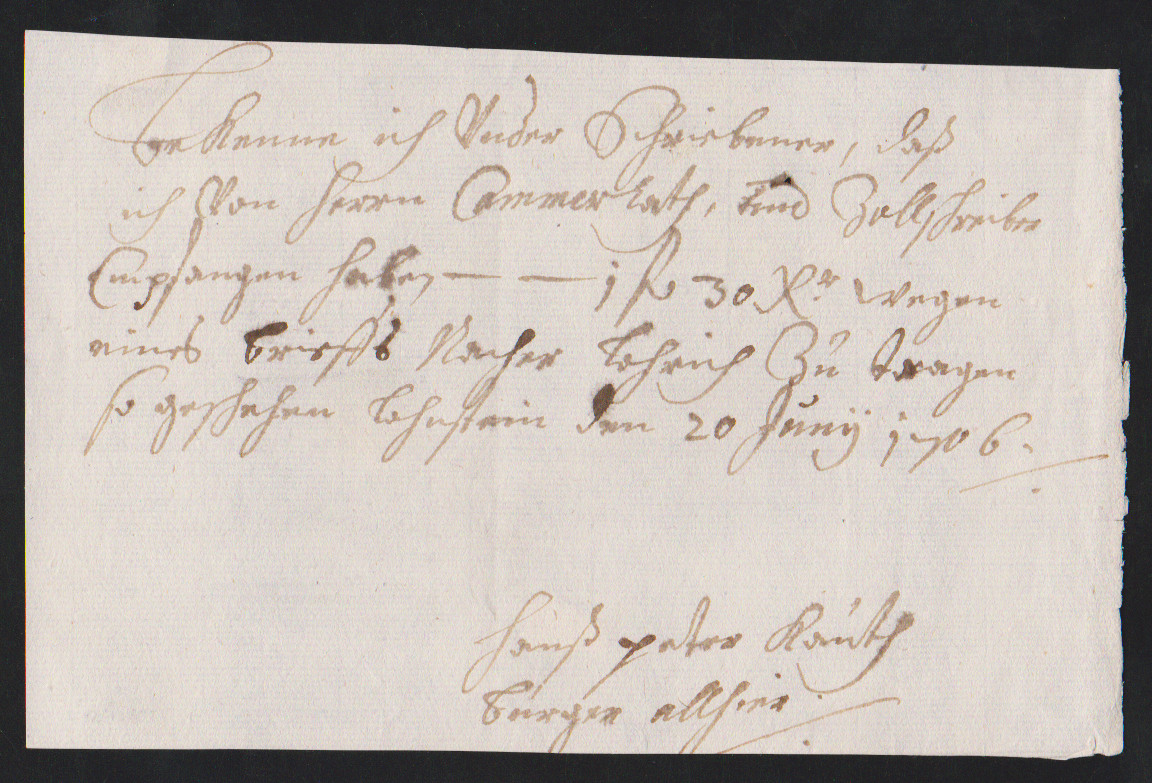 Bekenne ich Under Schriebener, daß
ich Von herrn Cammer Rath, und Zollschreiber
Empfangen haben — — 1 fl 30 Xr wegen
eines brieffs Nacher Lohrich Zu tragen
so geschehen Lohnstein den 20 Junÿ 1706.
Hanß peter Kauth
burger allhier.